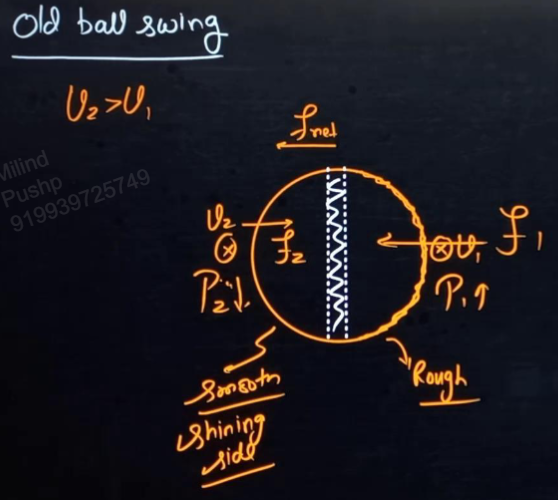 Old ball swing
V₂>V₁
Milind
Pushp
919939725749
fnet
V₂
⊗
f₂
P₂↓
⊗V₁
f₁
P₁↑
Smooth
Shining
side
Rough